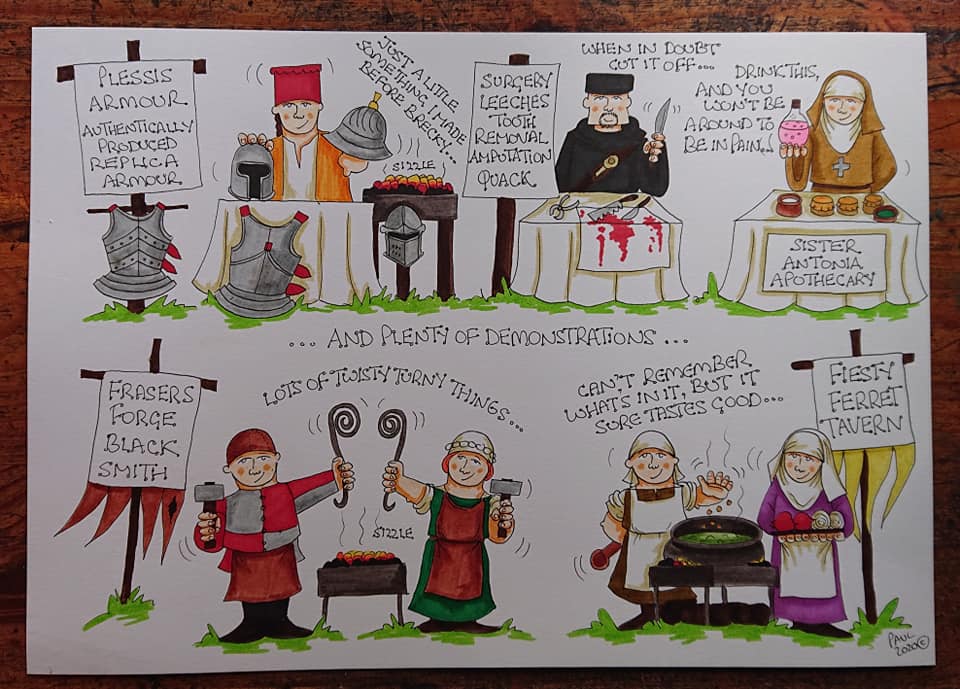 PLESSIS
ARMOUR
AUTHENTICALLY
PRODUCED
REPLICA
ARMOUR
JUST A LITTLE
SOMETHING I MADE
BEFORE BRECKY...
SIZZLE
SURGERY
LEECHES
TOOTH
REMOVAL
AMPUTATION
QUACK
WHEN IN DOUBT
CUT IT OFF...
DRINK THIS,
AND YOU
WON'T BE
AROUND TO
BE IN PAIN...
SISTER
ANTONIA
APOTHECARY
... AND PLENTY OF DEMONSTRATIONS ...
FRASERS
FORGE
BLACK
SMITH
LOTS OF TWISTY TURNY THINGS...
SIZZLE
CAN'T REMEMBER
WHAT'S IN IT, BUT IT
SURE TASTES GOOD...
FIESTY
FERRET
TAVERN
PAUL
2020©